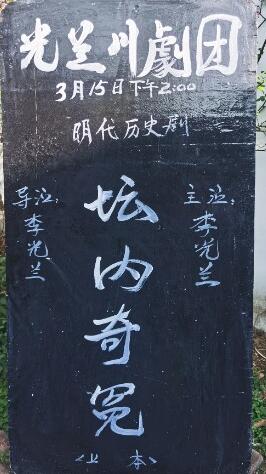 光兰川劇团
3月15日下午2:00
明代历史剧
主演：李光兰
坛内奇冤
〈上本〉
导演：李光兰